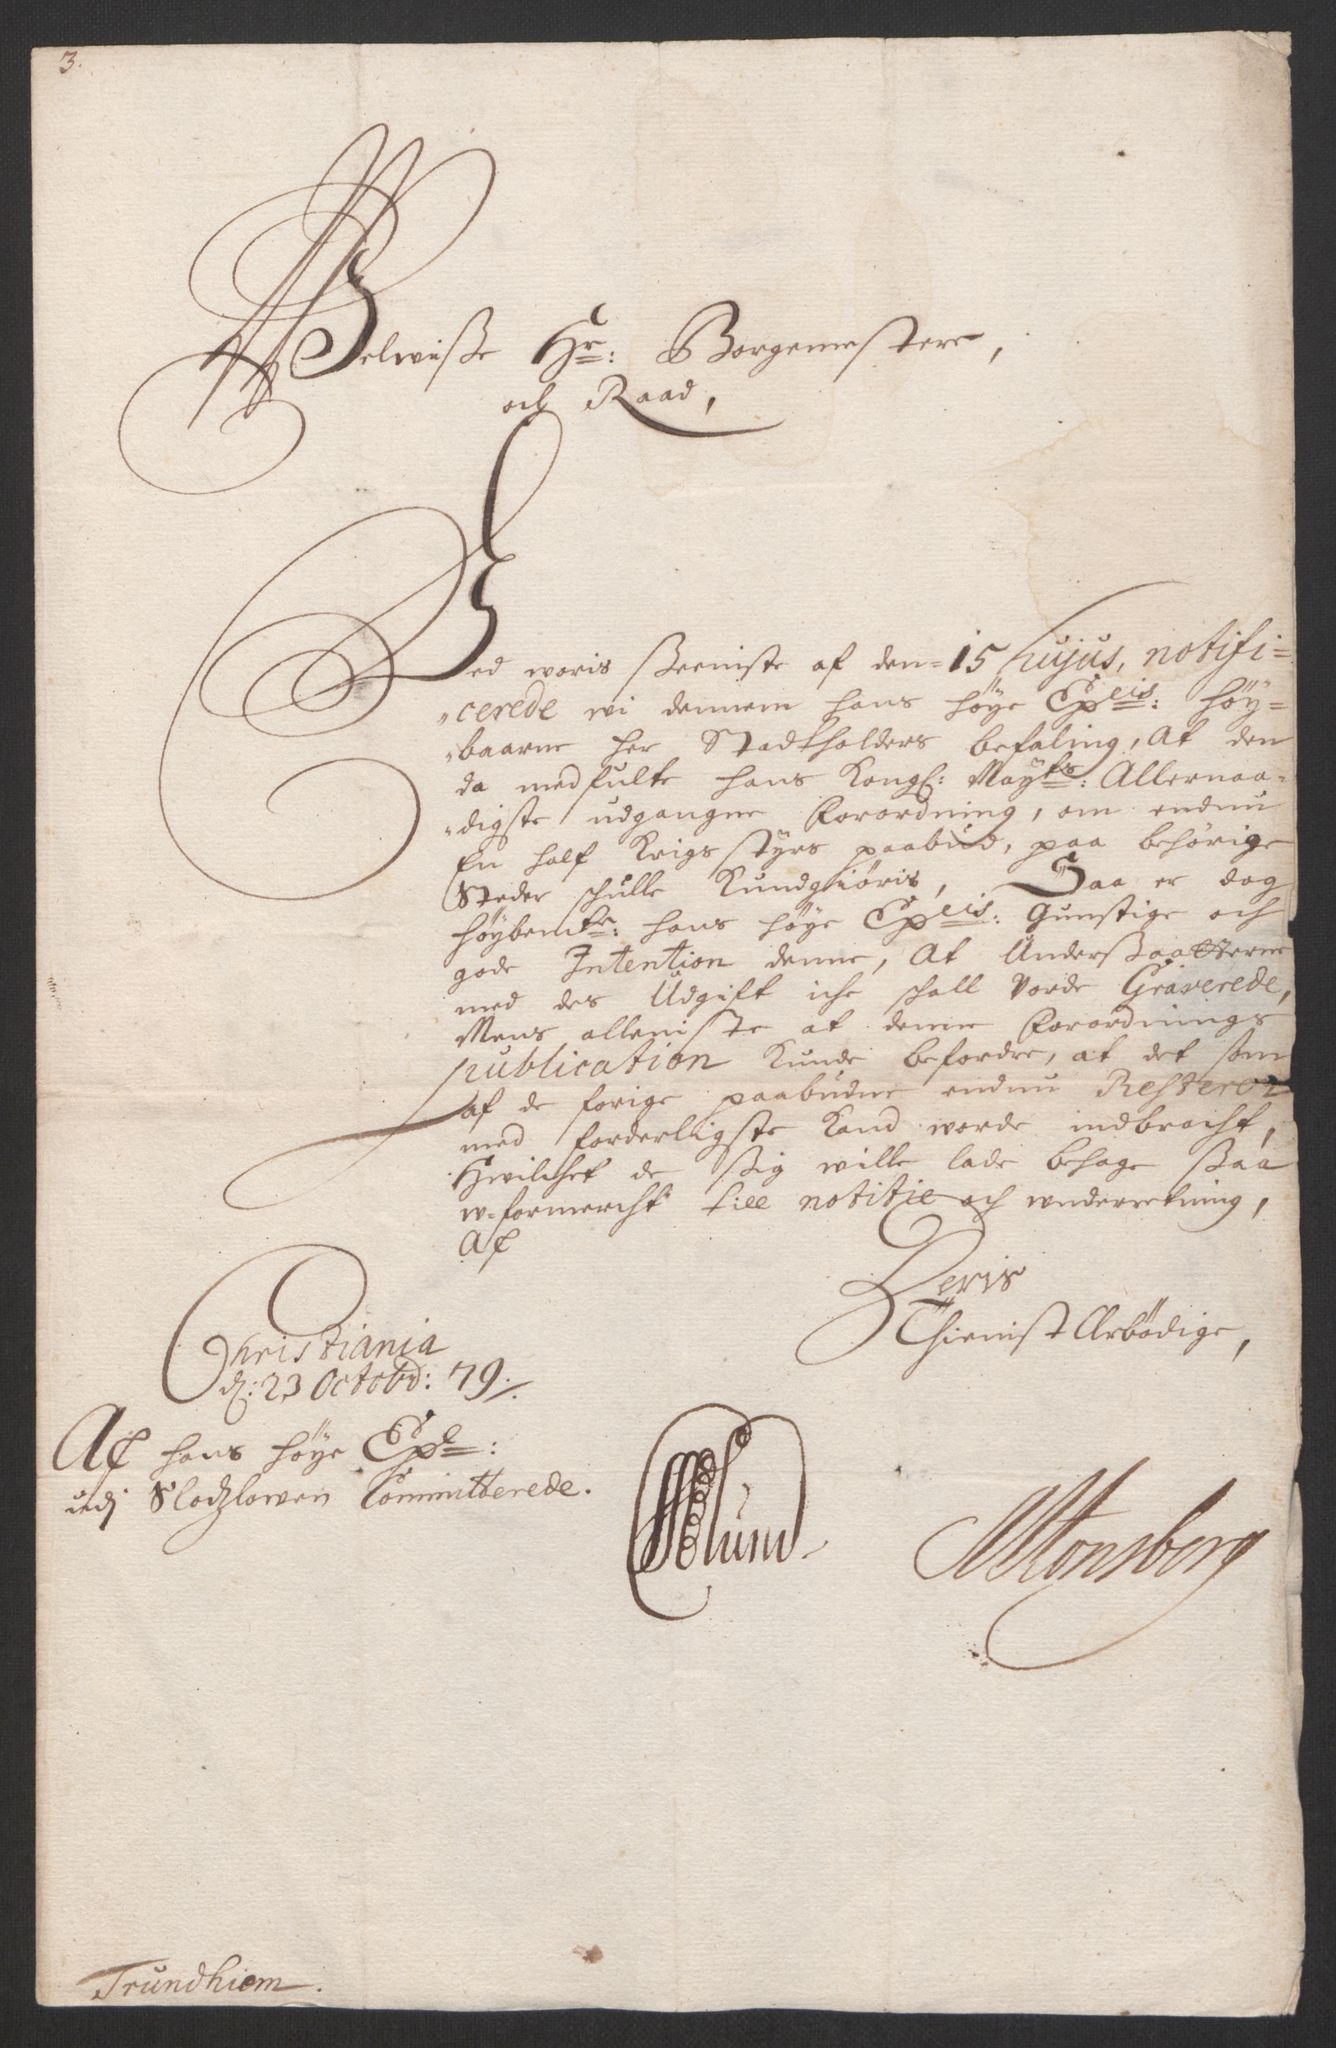 3.
Velwiiße Hr: Borgemestere,
och Raad,
Ved woris Seeniste af den 15 hujus, notifi-
cerede wi dennem hans höye Exclis: höy-
baarne her Stadtholders befaling, At den
da medfulte hans Kongl: Mayts: Allernaa-
digste udgangne Forordning, om endnu
En half Krigs styrs paabud, paa behörige
Steder schulle Kundgiöris, Saa er dog
höybemte: hans höye Exclis: Gunstige och
gode Intention denne, At Underßaatterne
med des Udgift iche schall vorde Graverede,
Mens alleniste at denne Forordnings
publication kunde befordre, at det som
af de forige paabudne endnu Resterer
med forderligste kand worde indbracht,
Hwilchet de sig wille lade behage ßaa
w-formercht till notitie och underretning,
Af
Deris
Thienist Arbödige,
Christiania
d: 23 Octobr: 79.
Af hans höye Excle:
udj Slodzlowen Committerede.
Tonsberg
Trundhiem.